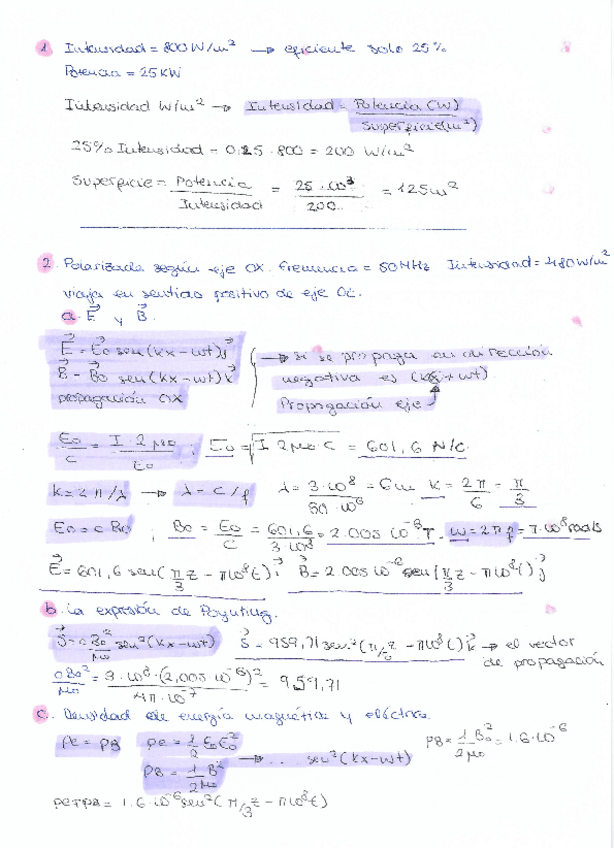 1. Intensidad = 800 W/m² → eficiente solo 25%
Potencia = 25 kW
Intensidad W/m² → Intensidad = Potencia (W) / Superficie (m²)
25% Intensidad = 0.25 · 800 = 200 W/m²
Superficie = Potencia / Intensidad = 25 · 10³ / 200 = 125 m²
2. Polarizada según eje OX. Frecuencia = 50 MHz Intensidad = 480 W/m²
viaja en sentido positivo de eje OZ.
a. E⃗ y B⃗.
E⃗ = E⃗o sen(kx - wt) j⃗ → si se propaga en dirección
B⃗ = B⃗o sen(kx - wt) k⃗ negativa es (kx + wt)
propagación OX Propagación eje
Eo / c = I · 2μo / Eo ; Eo = √(I 2μo · c) = 601,6 N/C.
k = 2π/λ → λ = c/f λ = 3 · 10⁸ / 50 · 10⁶ = 6m k = 2π / 6 = π / 3
Eo = c Bo ; Bo = Eo / c = 601,6 / 3 · 10⁸ = 2.005 · 10⁻⁶ T. w = 2πf = π · 10⁸ rad/s
E⃗ = 601,6 sen(π/3 z - π10⁸t) i⃗ B⃗ = 2.005 · 10⁻⁶ sen(π/3 z - π10⁸t) j⃗
b. La expresión de Poynting.
S⃗ = c Bo² / μo sen²(kx - wt) S⃗ = 959,71 sen²(π/3 z - π10⁸t) k⃗ → el vector
de propagación
c Bo² / μo = 3 · 10⁸ · (2,005 · 10⁻⁶)² / 4π · 10⁻⁷ = 959,71
c. Densidad de energía magnética y eléctrica.
ρE = ρB ρE = 1/2 εo Eo² ρB = 1 / 2μo Bo² = 1.6 · 10⁻⁶
ρB = 1 / 2μo B² → ... sen²(kx - wt)
ρE + ρB = 1.6 · 10⁻⁶ sen²(π/3 z - π10⁸t)